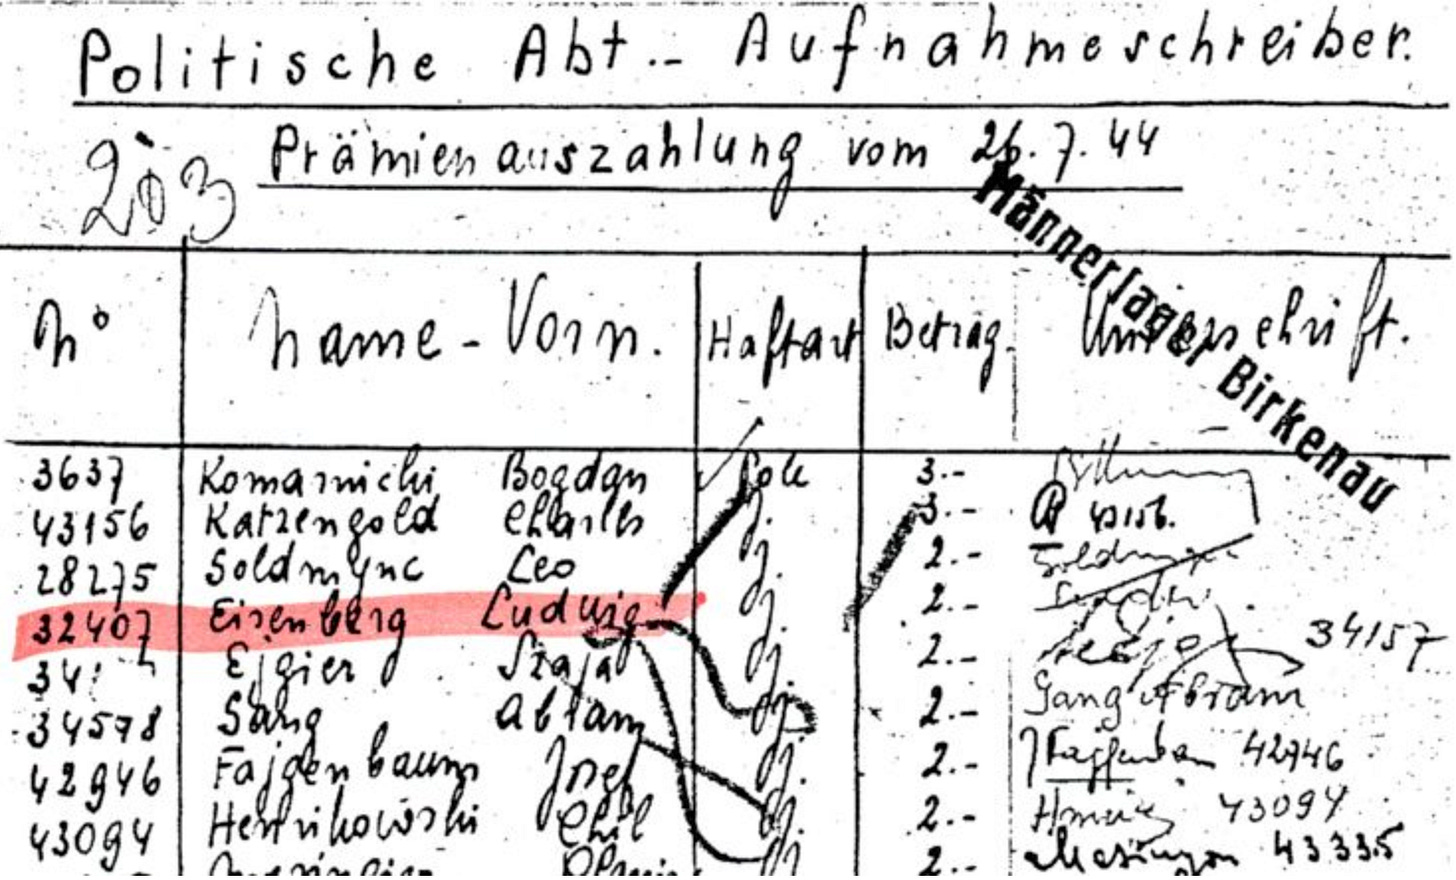 Politische Abt.- Aufnahmeschreiber.
203 Prämienauszahlung vom 26.7.44
Männerlager Birkenau
N° Name-Vorn. Haftart Betrag. Unterschrift.
3637 Komarnicki Bogdan Pole 3.-
43156 Katzengold Charles J. 3.- 43156.
28275 Soldmync Leo J. 2.-
32407 Eisenberg Ludwig J. 2.-
Ejgier Szaja J. 2.- 34157
34578 Sang Abram J. 2.- Sang Abram
42946 Fajgenbaum Josef J. 2.- 42946
43094 Henrikowski Chil J. 2.- 43094
2.- 43335